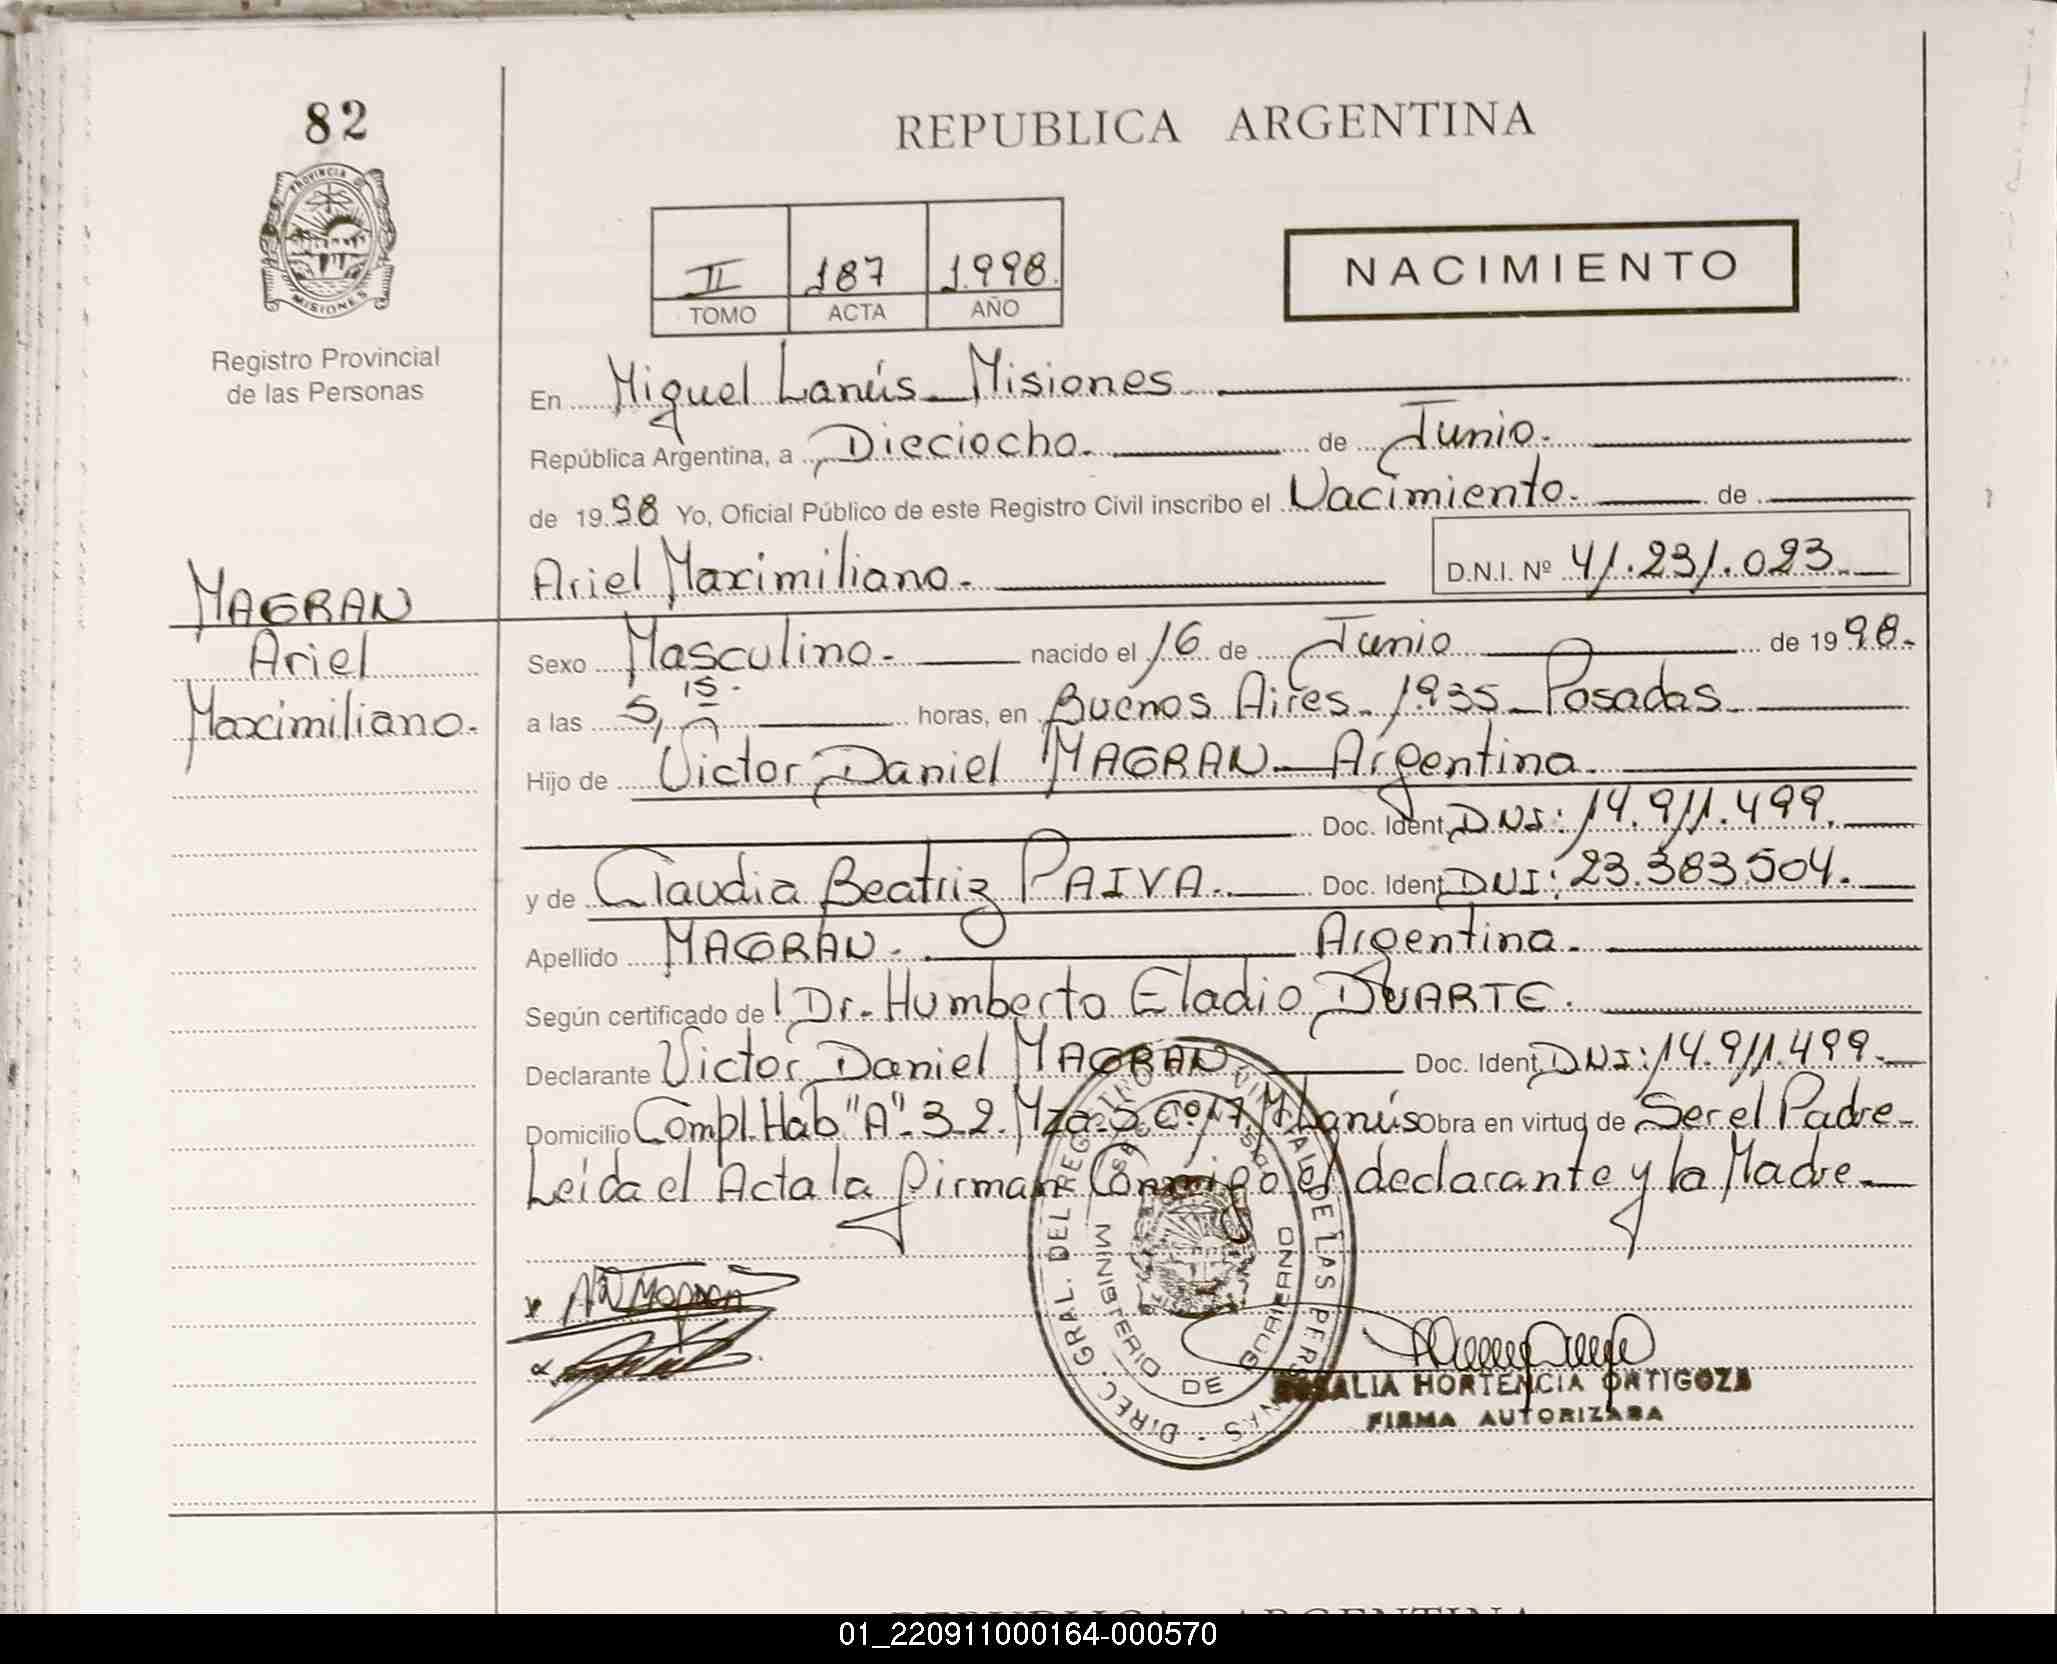 82
REPUBLICA ARGENTINA
PROVINCIA DE
MISIONES
Registro Provincial
de las Personas
II 187 1.998.
TOMO ACTA AÑO
NACIMIENTO
En Miguel Lanús - Misiones
República Argentina, a Dieciocho. de Junio.
de 1998 Yo, Oficial Público de este Registro Civil inscribo el Nacimiento. de
Ariel Maximiliano. D.N.I. Nº 41.231.023.
MAGRAN
Ariel
Maximiliano.
Sexo Masculino. nacido el 16 de Junio de 1998.
a las 5,15. horas, en Buenos Aires. 1.935 - Posadas
Hijo de Victor Daniel MAGRAN. - Argentina.
Doc. Ident. DNI: 14.911.499.
y de Claudia Beatriz PAIVA. Doc. Ident. DNI: 23.383.504.
Apellido MAGRAN. Argentina.
Según certificado de l Dr. Humberto Eladio DUARTE.
Declarante Victor Daniel MAGRAN. Doc. Ident. DNI: 14.911.499.
Domicilio Compl. Hab "A". 32. Mza. 5 Cº 17. M. Lanús Obra en virtud de Ser el Padre -
Leída el Acta la firman Conmigo el declarante y la Madre
DIREC. GRAL. DEL REGISTRO PROVINCIAL DE LAS PERSONAS
MINISTERIO DE GOBIERNO
ROSALIA HORTENCIA ORTIGOZA
FIRMA AUTORIZADA
REPUBLICA ARGENTINA
01_220911000164-000570